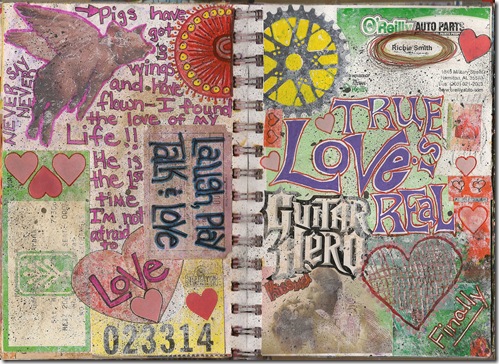 NEVER SAY
NEVER
Pigs have
got
wings
and have
flown-I found
the love of my
Life!!
He is
the 1st
time
I'm not
afraid
to
Laugh, Play
Talk & Love
Love
023314
O'Reilly AUTO PARTS
Richie Smith
Hamilton, AL
TRUE
LOVE.S
REAL
GUITAR
HERO
Finally